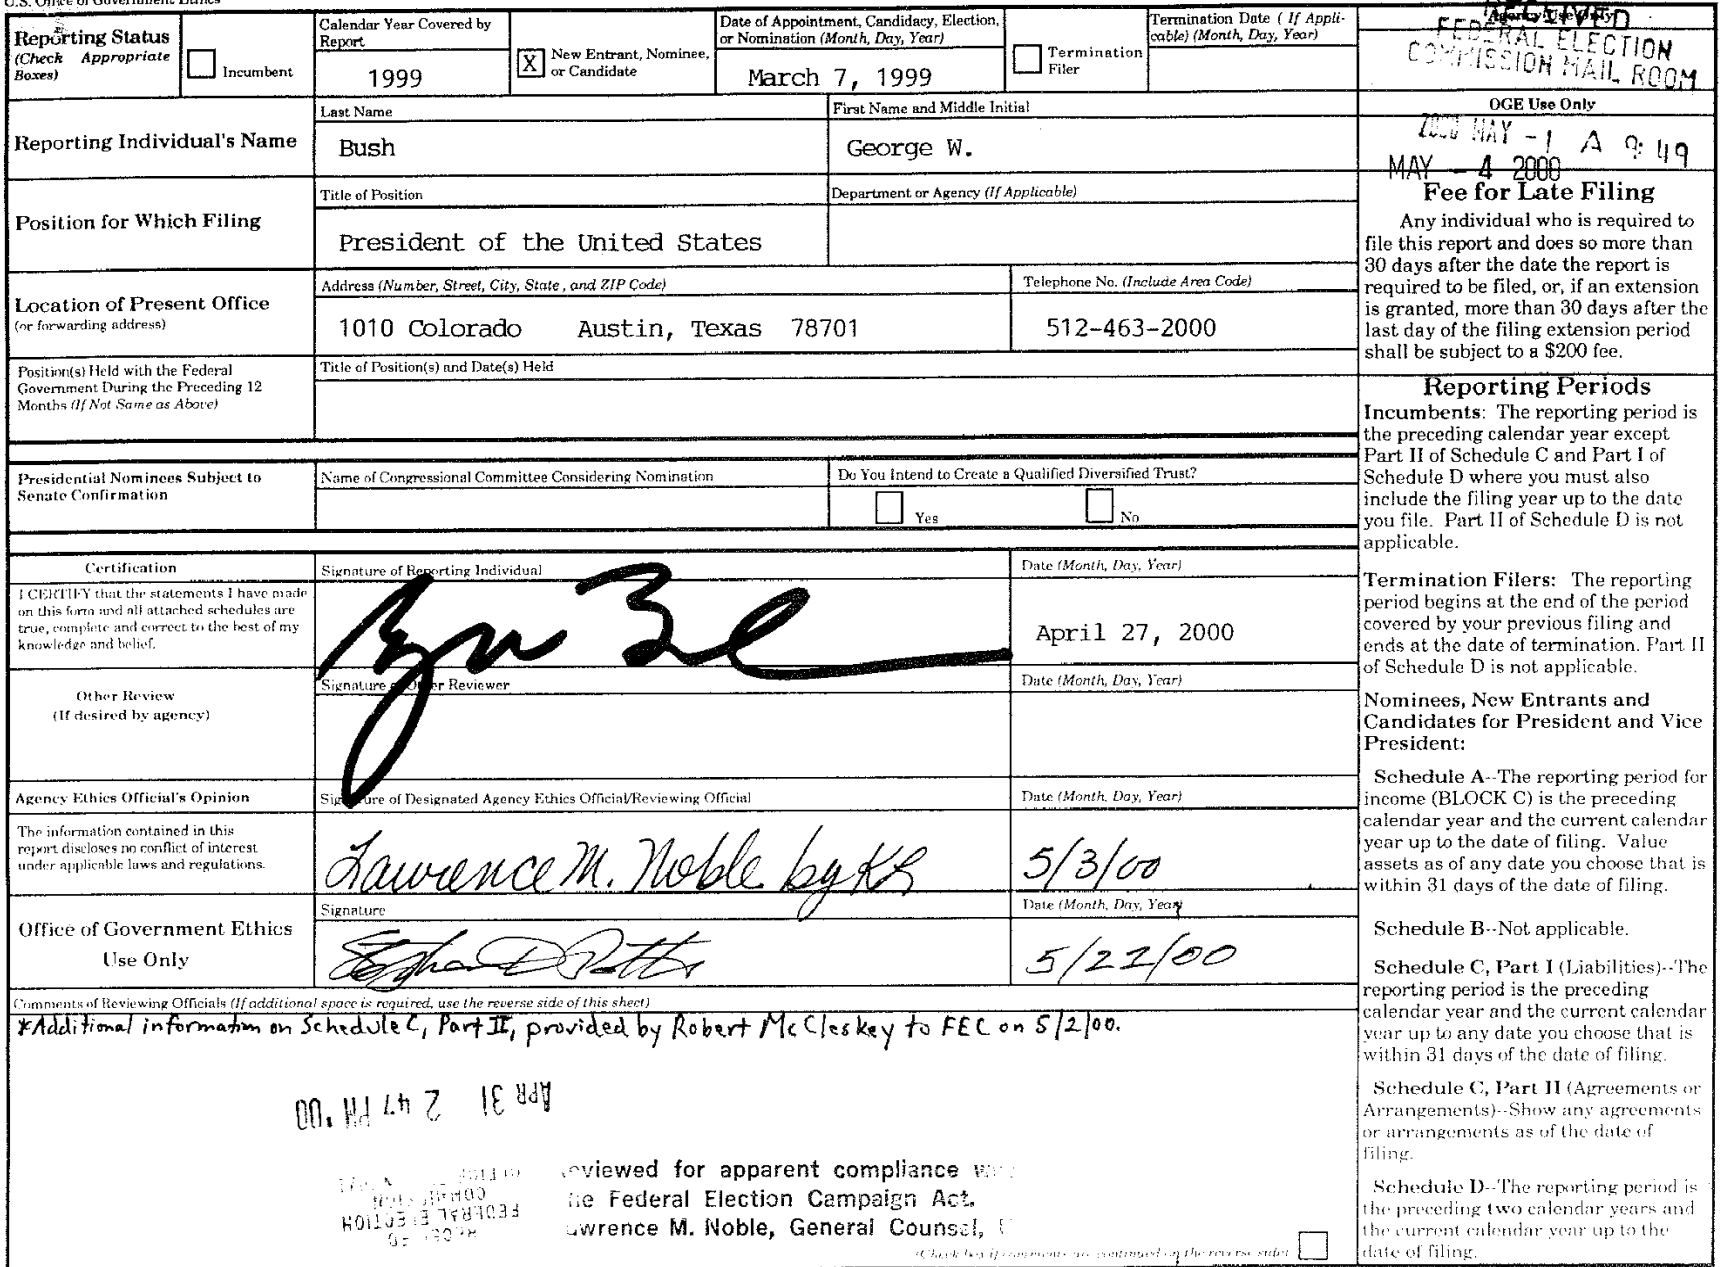 U.S. Office of Government Ethics
Reporting Status
(Check Appropriate
Boxes)
Incumbent
Calendar Year Covered by
Report
1999
X
New Entrant, Nominee,
or Candidate
Date of Appointment, Candidacy, Election,
or Nomination (Month, Day, Year)
March 7, 1999
Termination
Filer
Termination Date ( If Appli-
cable) (Month, Day, Year)
Agency Use Only
RECEIVED
FEDERAL ELECTION
COMMISSION MAIL ROOM
OGE Use Only
2000 MAY -1 A 9:49
MAY - 4 2000
Reporting Individual's Name
Last Name
Bush
First Name and Middle Initial
George W.
Position for Which Filing
Title of Position
President of the United States
Department or Agency (If Applicable)
Location of Present Office
(or forwarding address)
Address (Number, Street, City, State , and ZIP Code)
1010 Colorado Austin, Texas 78701
Telephone No. (Include Area Code)
512-463-2000
Position(s) Held with the Federal
Government During the Preceding 12
Months (If Not Same as Above)
Title of Position(s) and Date(s) Held
Presidential Nominees Subject to
Senate Confirmation
Name of Congressional Committee Considering Nomination
Do You Intend to Create a Qualified Diversified Trust?
Yes
No
Certification
I CERTIFY that the statements I have made
on this form and all attached schedules are
true, complete and correct to the best of my
knowledge and belief.
Signature of Reporting Individual
Date (Month, Day, Year)
April 27, 2000
Other Review
(If desired by agency)
Signature of Other Reviewer
Date (Month, Day, Year)
Agency Ethics Official's Opinion
The information contained in this
report discloses no conflict of interest
under applicable laws and regulations.
Signature of Designated Agency Ethics Official/Reviewing Official
Lawrence M. Noble by KR
Date (Month, Day, Year)
5/3/00
Office of Government Ethics
Use Only
Signature
Date (Month, Day, Year)
5/22/00
Comments of Reviewing Officials (If additional space is required, use the reverse side of this sheet)
*Additional information on Schedule C, Part II, provided by Robert McCleskey to FEC on 5/2/00.
APR 31 2 47 PM '00
FEDERAL ELECTION
eviewed for apparent compliance
he Federal Election Campaign Act.
wrence M. Noble, General Counsel,
(Check box if comments are continued on the reverse side)
Fee for Late Filing
Any individual who is required to
file this report and does so more than
30 days after the date the report is
required to be filed, or, if an extension
is granted, more than 30 days after the
last day of the filing extension period
shall be subject to a $200 fee.
Reporting Periods
Incumbents: The reporting period is
the preceding calendar year except
Part II of Schedule C and Part I of
Schedule D where you must also
include the filing year up to the date
you file. Part II of Schedule D is not
applicable.
Termination Filers: The reporting
period begins at the end of the period
covered by your previous filing and
ends at the date of termination. Part II
of Schedule D is not applicable.
Nominees, New Entrants and
Candidates for President and Vice
President:
Schedule A--The reporting period for
income (BLOCK C) is the preceding
calendar year and the current calendar
year up to the date of filing. Value
assets as of any date you choose that is
within 31 days of the date of filing.
Schedule B--Not applicable.
Schedule C, Part I (Liabilities)--The
reporting period is the preceding
calendar year and the current calendar
year up to any date you choose that is
within 31 days of the date of filing.
Schedule C, Part II (Agreements or
Arrangements)--Show any agreements
or arrangements as of the date of
filing.
Schedule D--The reporting period is
the preceding two calendar years and
the current calendar year up to the
date of filing.